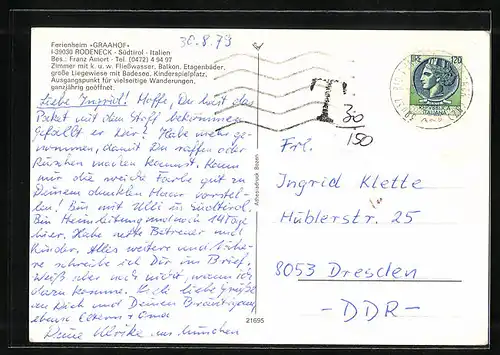 30.8.79
Ferienheim »GRAAHOF«
I-39030 RODENECK - Südtirol - Italien
Bes.: Franz Amort - Tel. (0472) 4 94 97
Zimmer mit k. u. w. Fließwasser, Balkon, Etagenbäder,
große Liegewiese mit Badesee, Kinderspielplatz,
Ausgangspunkt für vielseitige Wanderungen,
ganzjährig geöffnet.
Liebe Ingrid! Hoffe, Du hast das
Paket mit dem Stoff bekommen.
Gefällt er Dir? Habe mehr ge-
nommen, damit Du raffen oder
Rüschen machen kannst. Kann
mir die weiche Farbe gut zu
Deinem dunklen Haar vorstel-
len! Bin mit Ulli in Südtirol.
Bin 14 Tage
hier. Habe nette Betreuer und
Kinder. Alles weitere und
schreibe ich Dir im Brief.
Weiß aber noch nicht, wann ich
dazu komme. Liebe Grüße
an Dich und Deinen Bräutigam,
ebenso Eltern + Oma
Deine Ulrike aus München
Athesiadruck Bozen
21695
T
30
150
LIRE 120
Frl.
Ingrid Klette
Hüblerstr. 25
8053 Dresden
- DDR -